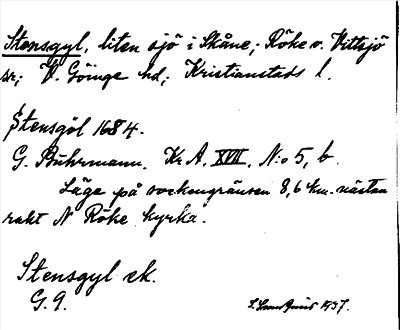 Stensgyl, liten sjö i Skåne; Röke o. Vittsjö
sr; V. Göinge hd; Kristianstads l.
Stensgöl 1684.
G. Buhrmann. Kr A. XVII, N:o 5, b.
Läge på sockengränsen 8,6 km. nästan
rakt N Röke kyrka.
Stensgyl ek.
G. 9.
1937.